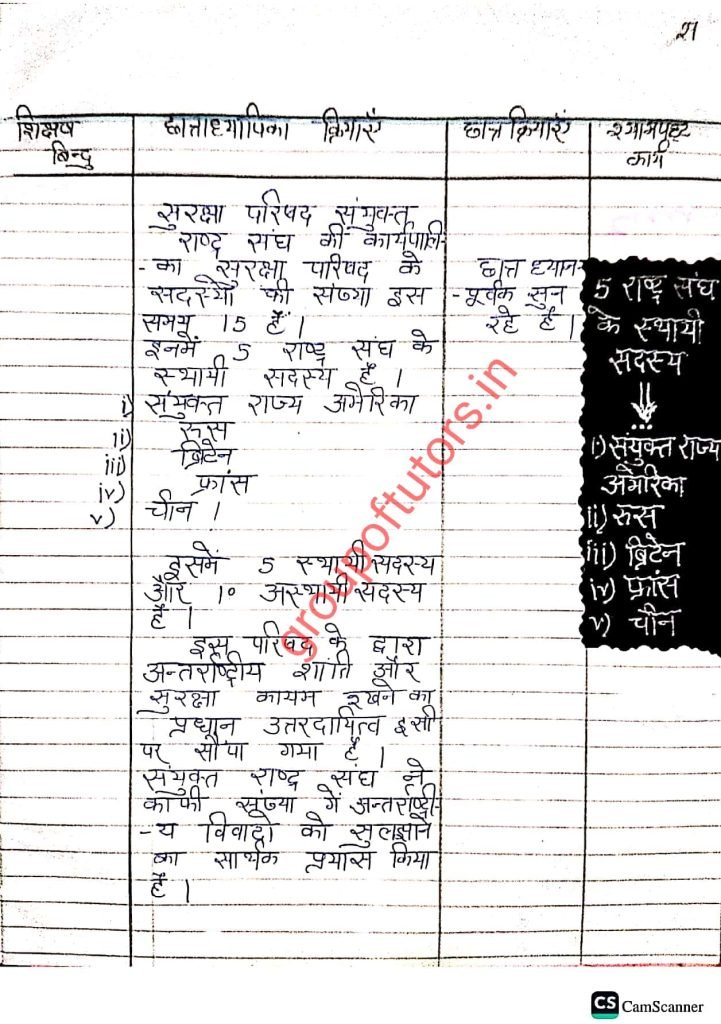 21
शिक्षण
बिन्दु
छात्राध्यापिका क्रियाएँ
छात्र क्रियाएँ
श्यामपट्ट
कार्य
सुरक्षा परिषद संयुक्त
राष्ट्र संघ की कार्यपालि-
-का सुरक्षा परिषद के
सदस्यों की संख्या इस
समय 15 हैं।
इनमें 5 राष्ट्र संघ के
स्थायी सदस्य हैं।
i) संयुक्त राज्य अमेरिका
ii) रुस
iii) ब्रिटेन
iv) फ्रांस
v) चीन।
इसमें 5 स्थायी सदस्य
और 10 अस्थायी सदस्य
हैं।
इस परिषद के द्वारा
अन्तर्राष्ट्रीय शांति और
सुरक्षा कायम रखने का
प्रधान उत्तरदायित्व इसी
पर सौंपा गया है।
संयुक्त राष्ट्र संघ ने
काफी संख्या में अन्तर्राष्ट्री-
-य विवादो को सुलझाने
का सार्थक प्रयास किया
हैं।
छात्र ध्यान-
-पूर्वक सुन
रहे हैं।
5 राष्ट्र संघ
के स्थायी
सदस्य
i) संयुक्त राज्य
अमेरिका
ii) रुस
iii) ब्रिटेन
iv) फ्रांस
v) चीन
groupoftutors.in
CS CamScanner